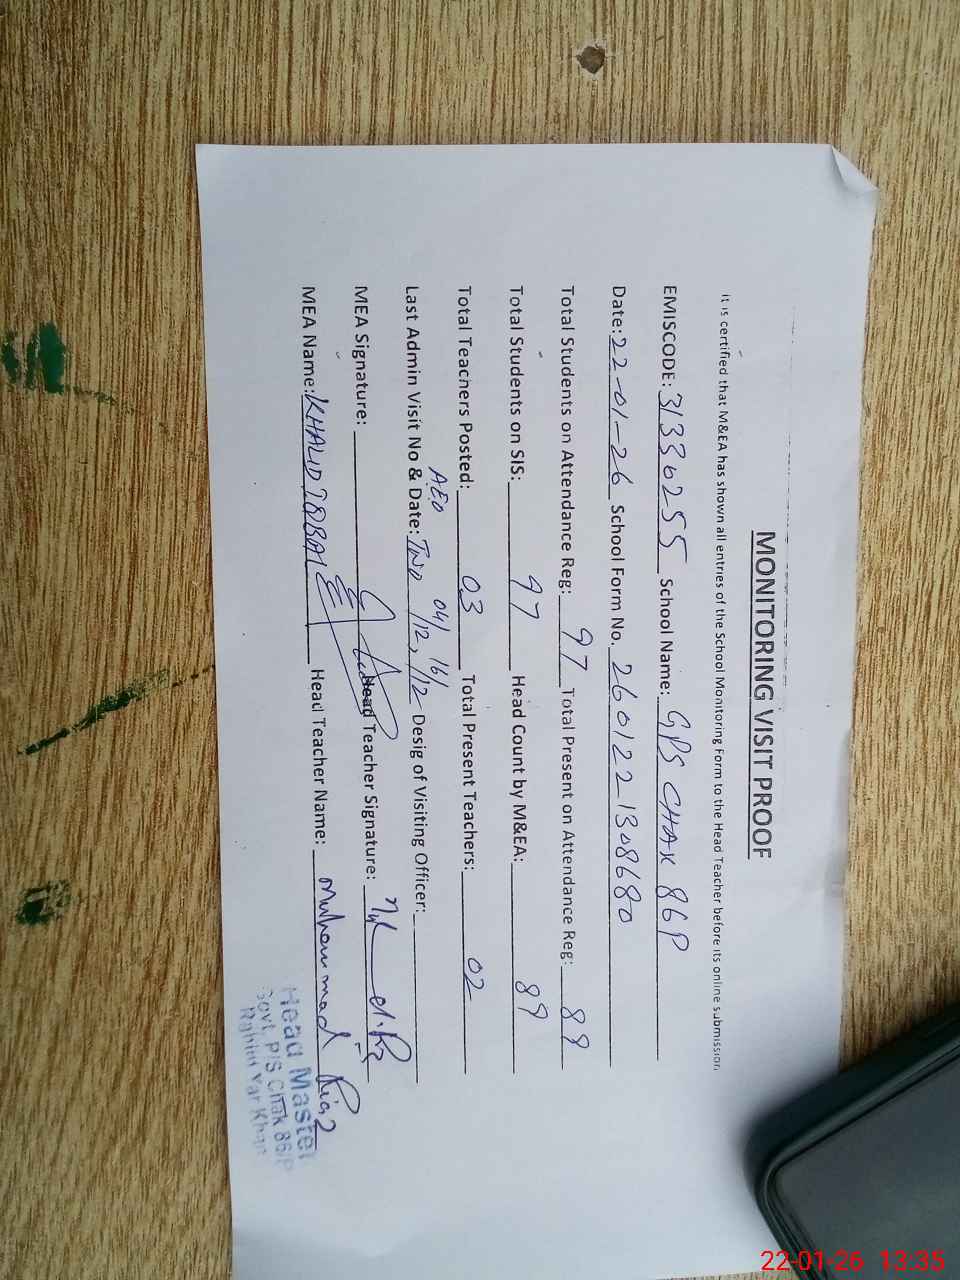 MONITORING VISIT PROOF
It is certified that M&EA has shown all entries of the School Monitoring Form to the Head Teacher before its online submission.
EMISCODE: 31330255 School Name: GPS CHAK 86P
Date: 22-01-26 School Form No. 2601221308680
Total Students on Attendance Reg: 97 Total Present on Attendance Reg: 89
Total Students on SIS: 97 Head Count by M&EA: 89
Total Teachers Posted: 03 Total Present Teachers: 02
AEO 04/12, 16/12
Last Admin Visit No & Date: Two Desig of Visiting Officer:
MEA Signature: Head Teacher Signature:
MEA Name: KHALID IQBAL Head Teacher Name: Muhammad Riaz
Head Master
Govt. P/S Chak 86/P
Rahim Yar Khan
22-01-26 13:35